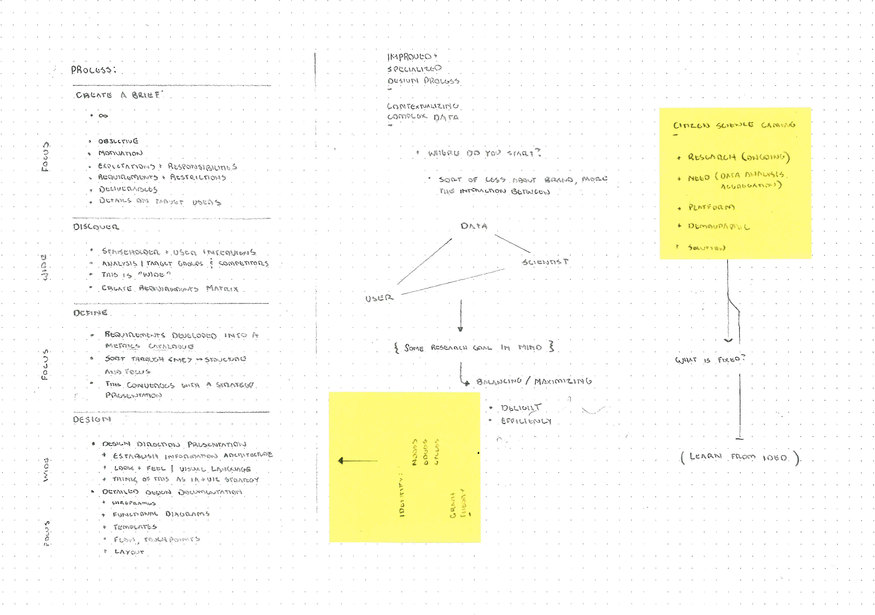 PROCESS:
CREATE A BRIEF:
FOCUS
OBJECTIVE
MOTIVATION
EXPECTATIONS + RESPONSIBILITIES
REQUIREMENTS + RESTRICTIONS
DELIVERABLES
DETAILS ON TARGET USERS
DISCOVER
WIDE
STAKEHOLDER + USER INTERVIEWS
ANALYSIS | TARGET GROUPS & COMPETITORS
THIS IS "WIDE"
CREATE REQUIREMENTS MATRIX
DEFINE
FOCUS
REQUIREMENTS DEVELOPED INTO A
METRICS CATALOGUE
SORT THROUGH → STRUCTURE
AND FOCUS
THIS CONVERGES WITH A STRATEGY
PRESENTATION
DESIGN
WIDE
DESIGN DIRECTION PRESENTATION
+ ESTABLISH INFORMATION ARCHITECTURE
+ LOOK + FEEL | VISUAL LANGUAGE
+ THINK OF THIS AS STRATEGY
DETAILED DESIGN DOCUMENTATION
FOCUS
+ WIREFRAMES
+ FUNCTIONAL DIAGRAMS
+ TEMPLATES
+ FLOW, TOUCHPOINTS
+ LAYOUT
IMPROVED +
SPECIALIZED
DESIGN PROCESS
CONTEXTUALIZING
COMPLEX DATA
+ WHERE DO YOU START?
SORT OF LESS ABOUT BRAND, MORE
THE INTERACTION BETWEEN
DATA
SCIENTIST
USER
{ SOME RESEARCH GOAL IN MIND }
BALANCING / MAXIMIZING
DELIGHT
EFFICIENCY
IDENTIFY:
NODES
GRAPH
THEORY
CITIZEN SCIENCE GAMING
+ RESEARCH (ONGOING)
+ NEED (DATA ANALYSIS,
AGGREGATION)
+ PLATFORM
+ DEMOGRAPHIC
+ SOLUTION
WHAT IS FIXED?
(LEARN FROM IDEO)